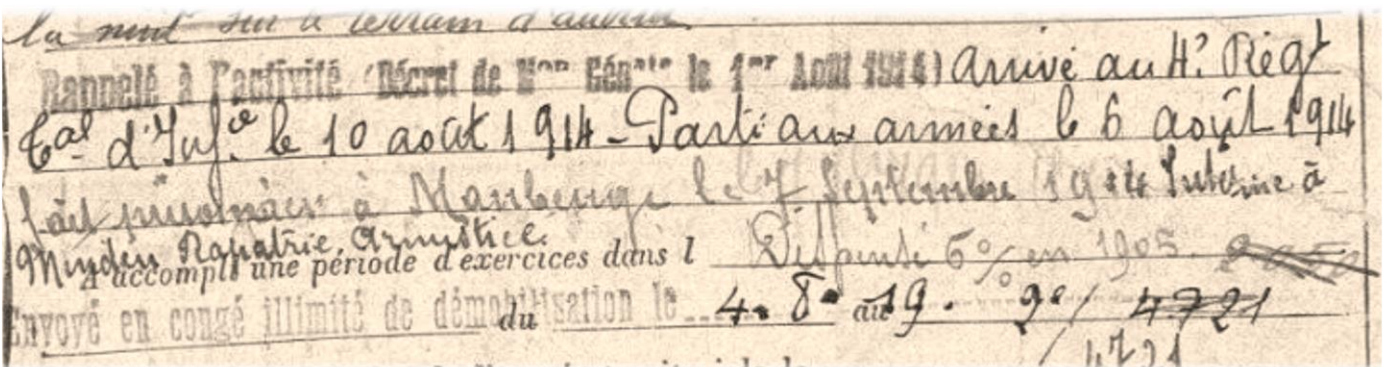 la nuit sur le terrain d'autrui
Rappelé à l'activité (Décret de Mon Génale le 1er Août 1914) arrivé au 4e Régt
Tal d'Infce le 10 août 1914 - Parti aux armées le 6 août 1914
fait prisonnier à Maubeuge le 7 Septembre 1914 Interné à
Minden Rapatrié Armistice.
A accompli une période d'exercices dans l Dispensé 6% en 1905.
Envoyé en congé illimité de démobilisation le 4. 8. 19. 4721
du au
4721